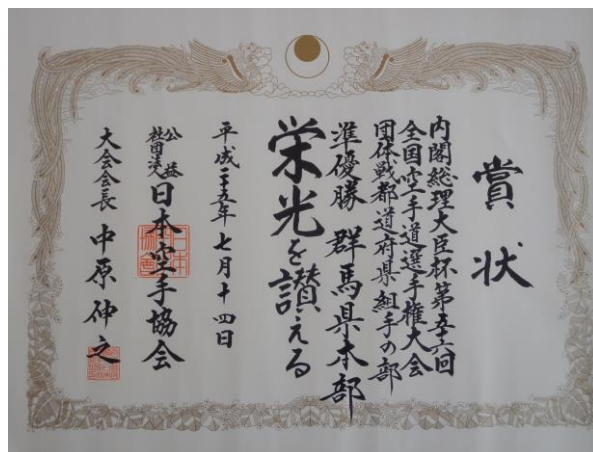 賞状
内閣総理大臣杯第五十六回
全国空手道選手権大会
団体戦都道府県組手の部
準優勝 群馬県本部
栄光を讃える
平成二十五年七月十四日
公益社団法人 日本空手協会
大会会長 中原伸之